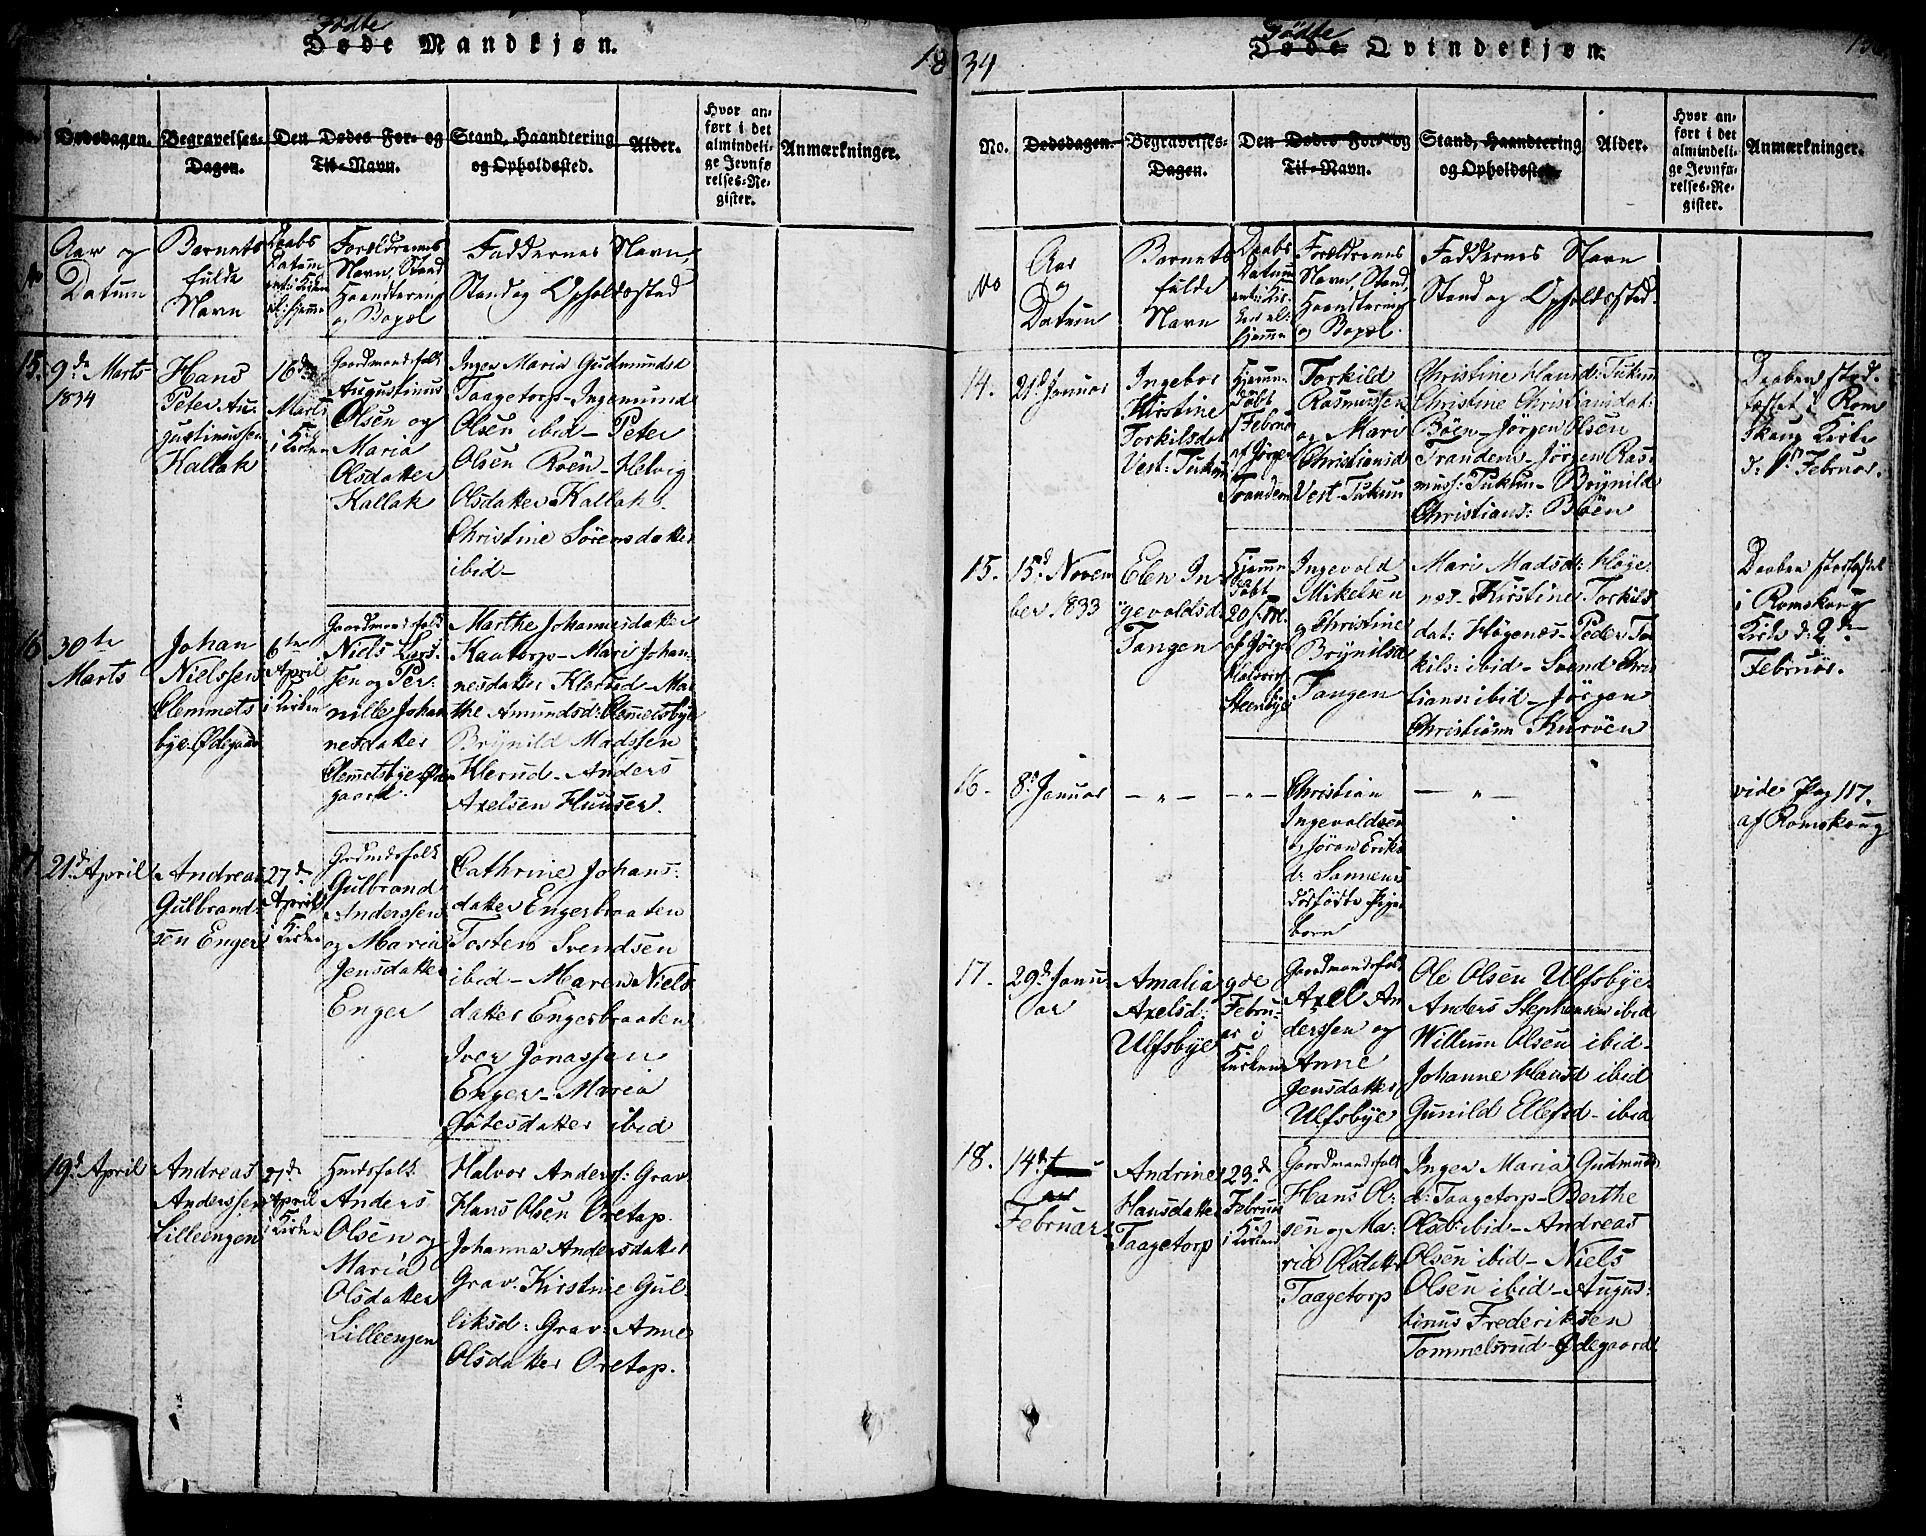 Fødte
Døde Mandkjøn.
18
Dødsdagen.
Begravelses-
Dagen.
Den Dødes For- og
Til-Navn.
Stand, Haandtering
og Opholdssted.
Alder.
Hvor an-
ført i det
almindeli-
ge Jevnfø
relses-Re-
gister.
Anmærkninger.
No
Aar og
Datum
Barnets
fulde
Navn
Daabs
Datum
enten i Kirken
el: hjemme
Forældrenes
Navn, Stand
Haandtering
og Bopæl
Faddernes Navn,
Stand og Opholdssted
15.
9de Marts
1834
Hans
Peter Au,
gustinussen
Kallak
16de
Marts
i Kirken
Gaardmandsfolk
Augustinus
Olsen og
Maria
Olsdatter
Kallak
Inger Maria Gudmundsd
Taagetorp - Ingemund
Olsen ibid - Peter
Olsen Roën - Helvig
Olsdatter Kallak.
Christine Sörensdatter
ibid -
16
30te
Marts
Johan
Nielssen
Clemmets
bye Ødegaard
6te
April
i Kirken
Gaardmandsfolk
Niels Lars:
sen og Per:
nille Johan
nesdatter
Clemmetsbye Øde
gaard.
Marthe Johannesdatter
Kaatorp - Mari Johan:
nesdatter Klerud - Mar
the Amundsd: Clemmetsbye
Brÿnild Madssen
Klerud - Anders
Axelsen Huuser.
17
21de April
Andreas
Gulbrand:
sen Enger
27de
April
i Kirken
Grdmdsfolk
Gulbrand
Anderssen
og Maria
Jensdatter
Enger
Cathrine Johans:
datter Engerbraaten
Tosten Svendsen
ibid - Maren Niels
datter Engerbraaten
Iver Jonassen
Enger - Maria
Götesdatter ibid
19d April
Andreas
Anderssen
Lilleengen
27de
April
i Kirken
Hmdsfolk
Anders
Olsen og
Maria
Olsdatter
Lilleengen
Halvor Anderss: Grav
Hans Olsen Oretap.
Johanna Andersdatter
Grav. Kirstine Gul:
liksd: Grav: Anne
Olsdatter Oretap.
Fødte
Døde Qvindekjøn.
34
No.
Dødsdagen.
Begravelses-
Dagen.
Den Dødes For- og
Til-Navn.
Stand, Haandtering
og Opholdssted.
Alder.
Hvor an-
ført i det
almindeli-
ge Jevnfø-
relses-Re-
gister.
Anmærkninger.
No
Aar
og
Datum
Barnets
fulde
Navn
Daabs
Datum
enten i Kir-
ken el:
hjemme
Forældrenes
Navn, Stand,
Haandtering
og Bopæl.
Faddernes Navn
Stand og Opholdssted.
14.
21d Januar
Ingebor
Kirstine
Torkilsdat
Vest: Tukun
Hjemme
døbt
1 Februar
af Jörgen
Tranden
Torkild
Rasmussen
og Mari
Christiansd
Vest. Tukun
Christine Hansd: Tukun
Christine Christiansdat:
Böen - Jörgen Olsen
Tranden - Jörgen Ras:
muss: Tukun - Brÿnild
Christians: Böen
Daaben stad.
fæstet i Rom
skoug Kirke
d: 1ste Februar.
15.
15d Novem
ber 1833
Elen In-
gevoldsd:
Tangen
Hjemme
døbt
af Jörgen
Halvors
Steenbye
Ingevold
Mikelsen
og Christine
Brÿnilsd
Tangen
Mari Madsd: Höge
næs - Kirstine Torkils
dat: Högenæs - Peder To
kils: ibid - Svend Chris
tians: ibid - Jörgen
Christians Kuröen
Daaben stadfæstet
i Romskoug
Kirke d: 2den
Februar.
16.
8d Januar
— „ —
— „ —
Christian
Ingevoldsen
og Jöran Eriks
d: Sannens
dødfødte Pige
barn
— „ —
vide Pag 117.
af Romskoug
17.
29d Janu
ar
Amalia
Axelsd:
Ulfsbye
9de
Febru-
ar i
Kirken
Gaardmandsfolk
Axel An
derssen og
Anne
Jensdatter
Ulfsbye
Ole Olsen Ulfsbye
Anders Stephensen ibid
Willum Olsen ibid -
Johanne Hansd ibid
Gunild Ellefsd - ibid
18.
14de
Februar
Andrine
Hansdatter
Taagetorp
23de
Februar
i Kirken
Gaardmandsfolk
Hans Ol:
sen og Ma:
ria Olsdatter
Taagetorp
Inger Maria Gudmund
d: Taagetorp - Berthe
Olsd: ibid - Andreas
Olsen ibid - Niels
Olsen ibid - Augus:
tinus Frederiksen
Tommelsrud - Ødegaard